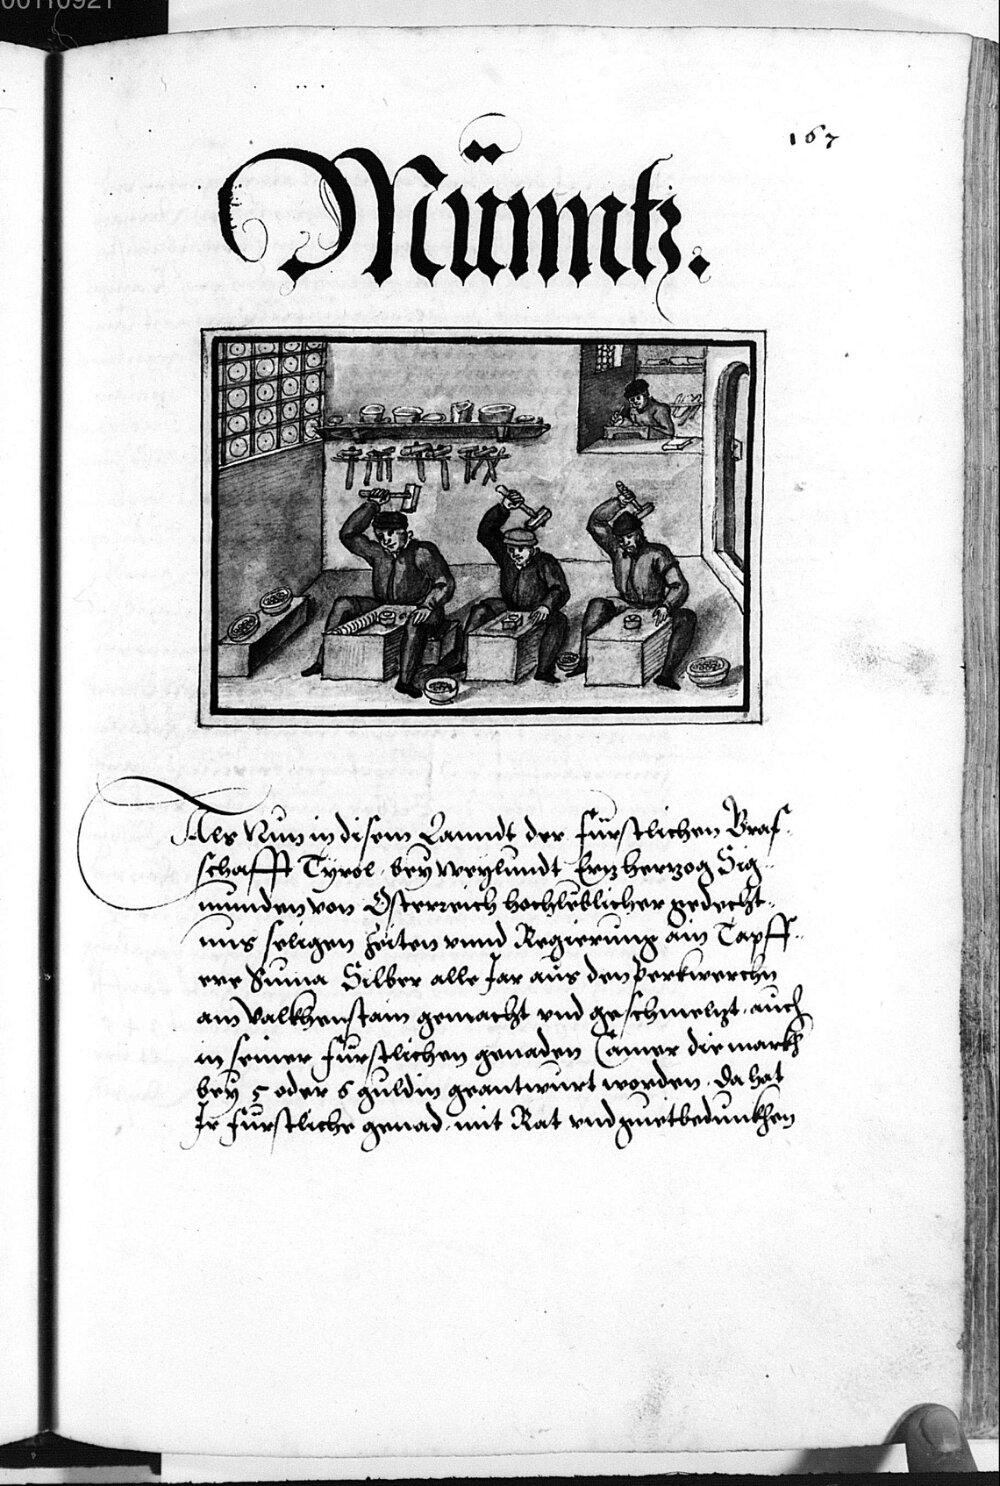 00110921
167
Münntz.
Als Nun in disem Lanndt der fürstlichen Graf-
schafft Tyrol, bey weylundt Ertzherzog Sig-
munden von Österreich hochlöblicher gedecht-
nus seligen Zeiten unnd Regierung ain Tapff-
ere Suma Silber alle Jar aus den Perkwerchn
am Valkhenstain gemacht und geschmeltzt, auch
in seiner fürstlichen genaden Camer die markh
bey 5 oder 6 guldin geantwurt worden. Da hat
Ir fürstliche genad, mit Rat und guetbedunkhen